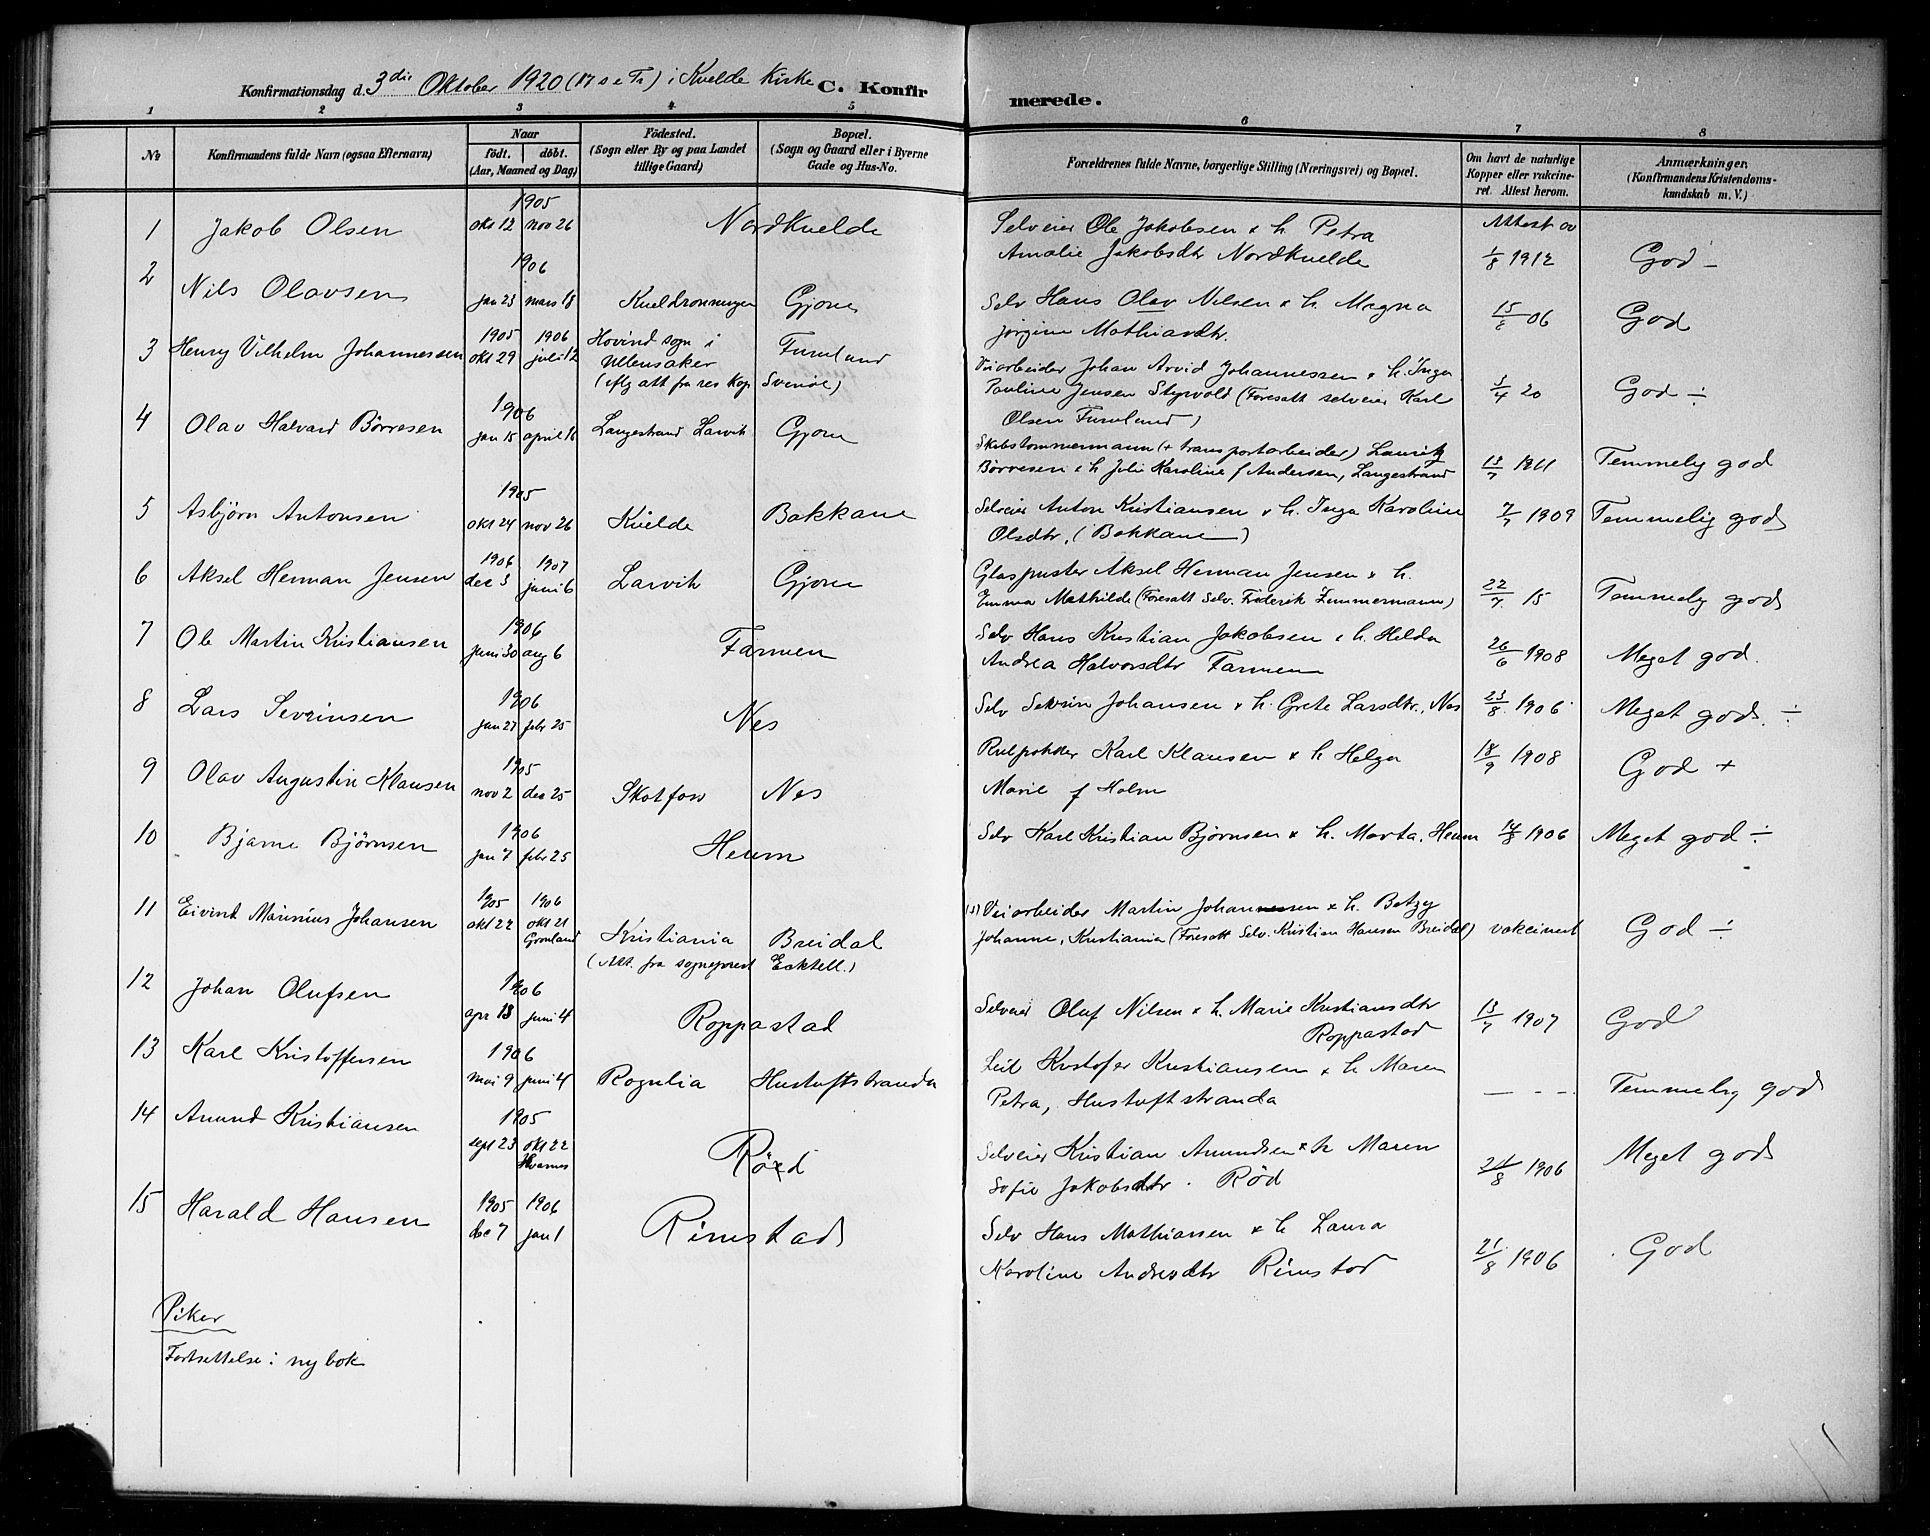 Konfirmationsdag d. 3die Oktober 1920 (17 s e Tr) i Kvelde Kirke C. Konfirmerede.
1 2 3 4 5 6 7 8
No Konfirmandens fulde Navn (ogsaa Efternavn) Naar födt. döbt. (Aar, Maaned og Dag) Födested. (Sogn eller By og paa Landet tillige Gaard) Bopæl. (Sogn og Gaard eller i Byerne Gade og Hus-No. Forældrenes fulde Navne, borgerlige Stilling (Næringsvei) og Bopæl. Om havt de naturlige Kopper eller vakcineret. Attest herom. Anmærkninger. (Konfirmandens Kristendomskundskab m. V.)
1905
1 Jakob Olsen okt 12 nov 26 Nordkvelde Selveier Ole Jakobsen & h. Petra Attest av
Amalie Jakobsdtr Nordkvelde 1/8 1912 God -
1906
2 Nils Olavsen jan 23 mars 18 Gjone Selv Hans Olav Nilsen & h. Magna
Jørgine Mathiasdtr. 15/8 06 God
1905 1906
3 Henry Vilhelm Johannessen okt 29 juli 12 Hovind sogn i Ullensaker Furulund
(iflg att fra res Kap Svenöe)
Veiarbeider Johan Arvid Johannessen & h. Inga
Pauline Jensen Styrvold (Foresatt selveier Karl 3/4 20 God ÷
Olsen Furulund)
1906
4 Olav Halvard Børresen jan 15 april 16 Langestrand Larvik Gjone
Skibstømmermann (+ transportarbeider) Lauritz
Børresen & h Julie Karoline f Andersen, Langestrand 13/7 1911 Temmelig god
1905
5 Asbjørn Antonsen okt 24 nov 26 Kvelde Bakkane Selveier Anton Kristiansen & h. Inga Karoline 7/7 1909 Temmelig god
Olsdtr. (Bakkane)
1906 1907
6 Aksel Herman Jensen dec 3 juni 6 Larvik Gjone Glaspuster Aksel Herman Jensen & h.
Emma Mathilde (Foresatt Selv. Frederik Zimmermann) 22/7 15 Temmelig god
1906
7 Ole Martin Kristiansen juni 30 aug 6 Farmen Selv Hans Kristian Jakobsen & h. Helda
Andrea Halvorsdtr Farmen 26/6 1908 Meget god.
1906
8 Lars Sevrinsen jan 27 febr 25 Nes Selv Sevrin Johansen & h. Grete Larsdtr., Nes 23/8 1906 Meget god. ÷
1905
9 Olav Augustin Klausen nov 2 dec 25 Skotfoss Nes Karl Klausen & h Helga 18/9 1908 God +
Marie f Holm
1906
10 Bjarne Bjørnsen jan 7 febr 25 Heum Selv Karl Kristian Bjørnsen & h. Marta, Heum 14/8 1906 Meget god ÷
1905 1906
11 Eivind Marinius Johansen okt 22 okt 21 Grønland Kristiania Breidal
(Att. fra sogneprest Ecktell.)
Veiarbeider Martin Johansen & h. Betzy
Johanne, Kristiania (Foresatt Selv. Kristian Hansen Breidal) vakcinert God ÷
1906
12 Johan Olufsen apr 13 juni 4 Roppastad Selveier Oluf Nilsen & h. Marie Kristiansdtr
Roppastad 13/7 1907 God
1906
13 Karl Kristoffersen mai 9 juni 4 Rognlia Hustuftstranda Leil Kristofer Kristiansen & h Maren
Petra, Hustuftstranda — - - Temmelig god
1905
14 Amund Kristiansen sept 23 okt 22 Hvarnes Röd Selveier Kristian Amundsen & h Maren
Sofie Jakobsdtr. Rød 21/8 1906 Meget god
1905 1906
15 Harald Hansen dec 7 jan 1 Rimstad Selv Hans Mathiassen & h Laura
Karoline Andersdtr Rimstad 21/8 1906 God
Piker
Fortsettelse i ny bok